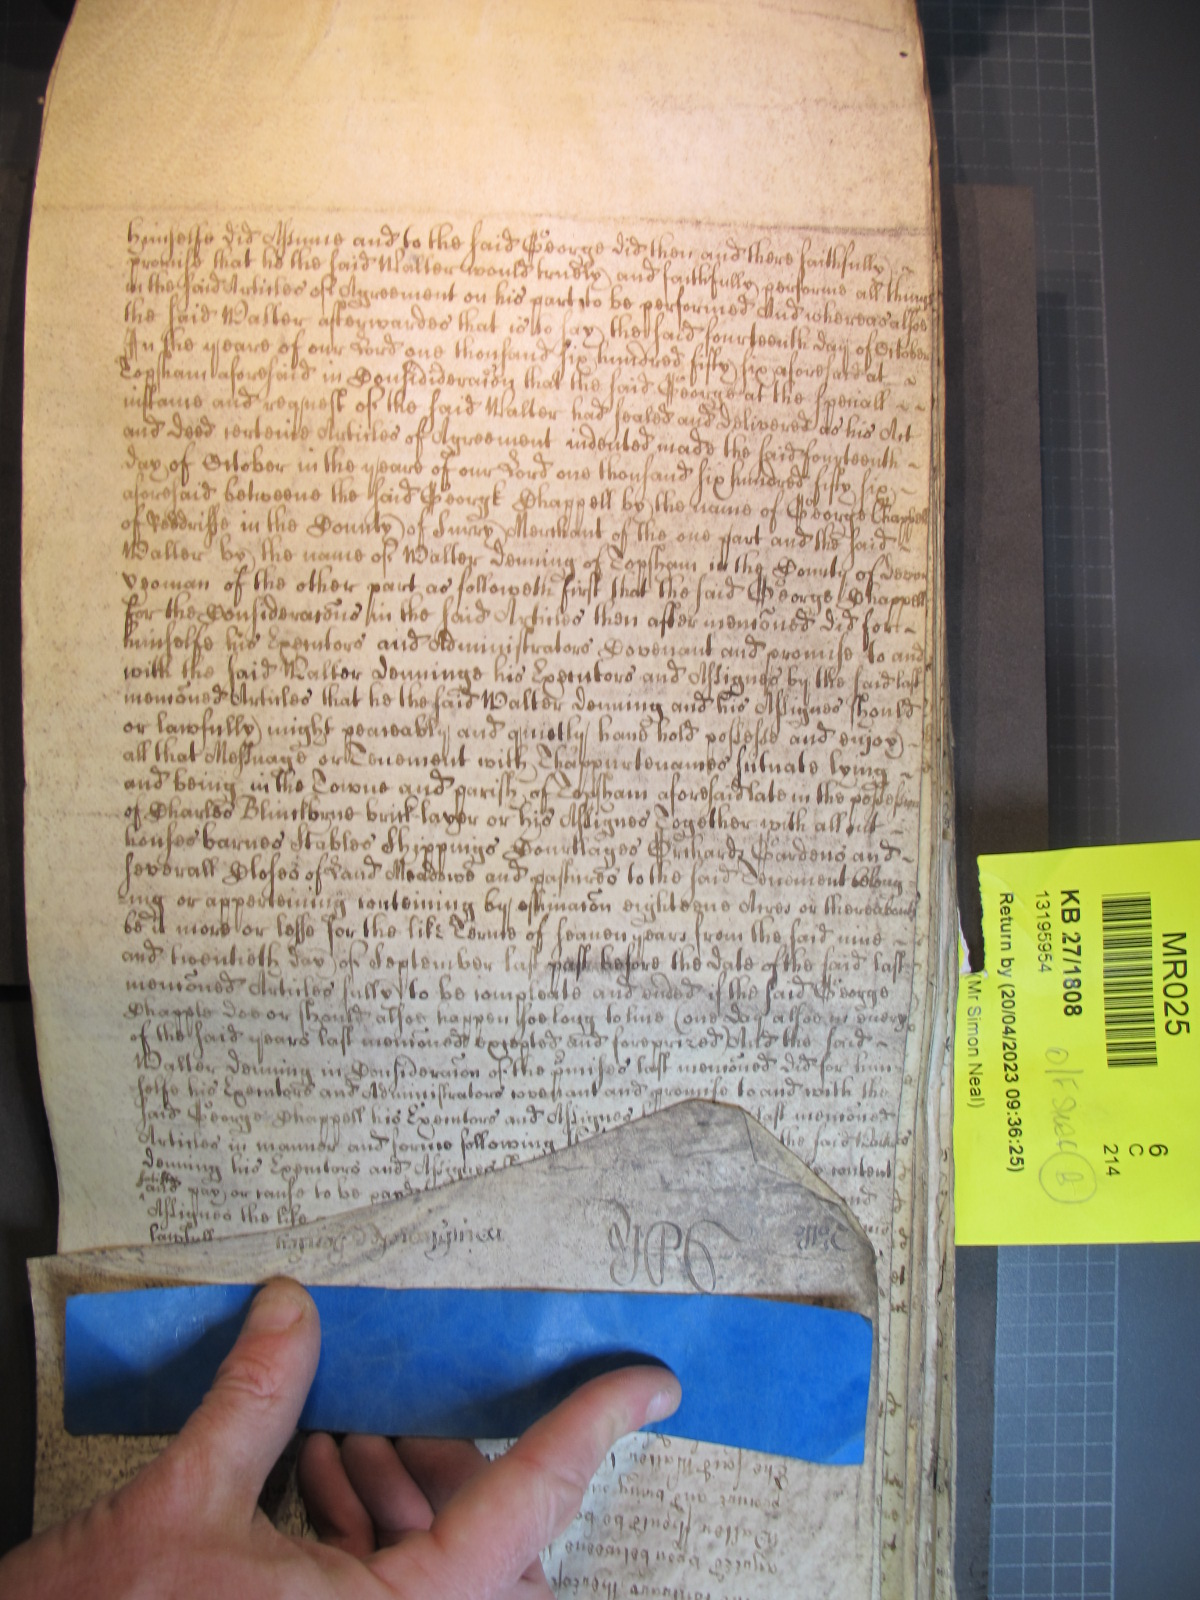 himselfe did Assume and to the said George did then and there faithfully
promise that he the said Walter would truely and faithfully performe all things
in the said Articles of Agreement on his part to be performed And whereas alsoe
the said Walter afterwardes that is to say the said fourteenth day of October
In the yeare of our Lord one thousand six hundred fifty six aforesaid at
Topsham aforesaid in Consideracon that the said George at the speciall
instance and request of the said Walter had sealed and delivered as his Act
and deed certeine Articles of Agreement indented made the said fourteenth
day of October in the yeare of our Lord one thousand six hundred fifty six
aforesaid betweene the said George Chappell by the name of George Chappell
of Reddriffe in the County of Surry Merchant of the one part and the said
Walter by the name of Walter Denning of Topsham in the County of Devon
yeoman of the other part as followeth first that the said George Chappell
for the Consideracons in the said Articles then after menconed did for
himselfe his Executors and Administrators Covenant and promise to and
with the said Walter Denninge his Executors and Assignes by the said last
menconed Articles that he the said Walter Denning and his Assignes should
or lawfully might peaceably and quietly haue hold possesse and enioy
all that Messuage or Tenement with Thappurtenances scituate lying
and being in the Towne and parish of Topsham aforesaid late in the possession
of Charles brick layer or his Assignes Together with all out
houses barnes Stables Shippings Courtlages Orchards Gardens and
severall Closes of Land Meadowe and pastures to the said Tenement belong
ing or apperteining conteining by estimacon eighteene Acres or thereabouts
be it more or lesse for the like Terme of seaven yeares from the said nine
and twentieth day of September last past before the date of the said last
menconed Articles fully to be compleate and ended if the said George
Chapple doe or should alsoe happen soe long to live (one day alsoe in every
of the said yeares last menconed excepted and foreprized) And the said
Walter Denning in Consideracon of the premises last menconed did for him
selfe his Executors and Administrators covenant and promise to and with the
said George Chappell his Executors and Assignes last menconed
Articles in manner and forme following the said Walter
Denning his Executors and Assignes content
and pay or cause to be payd and
Assignes the like
lawfull
Rolls
The said Walter
Walter should be
betweene
MR025
KB 27/1808
13195954
Return by (20/04/2023 09:36:25)
(Mr Simon Neal)
6
C
214